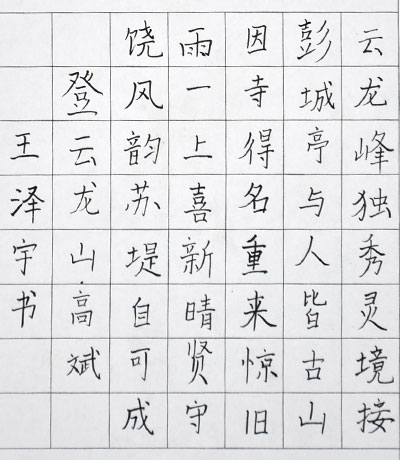 云龙峰独秀灵境接
彭城亭与人皆古山
因寺得名重来惊旧
雨一上喜新晴贤守
饶风韵苏堤自可成
登云龙山·高斌
王泽宇书